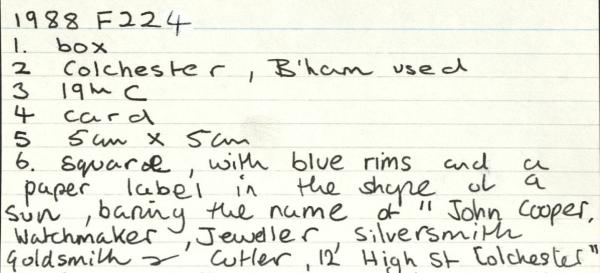 1988 F224
1. box
2 Colchester, B'ham used
3 19th C
4 card
5 5cm x 5cm
6. square, with blue rims and a
paper label in the shape of a
sun, baring the name of "John Cooper,
Watchmaker, Jeweller, Silversmith
Goldsmith & Cutler, 12 High St Colchester"